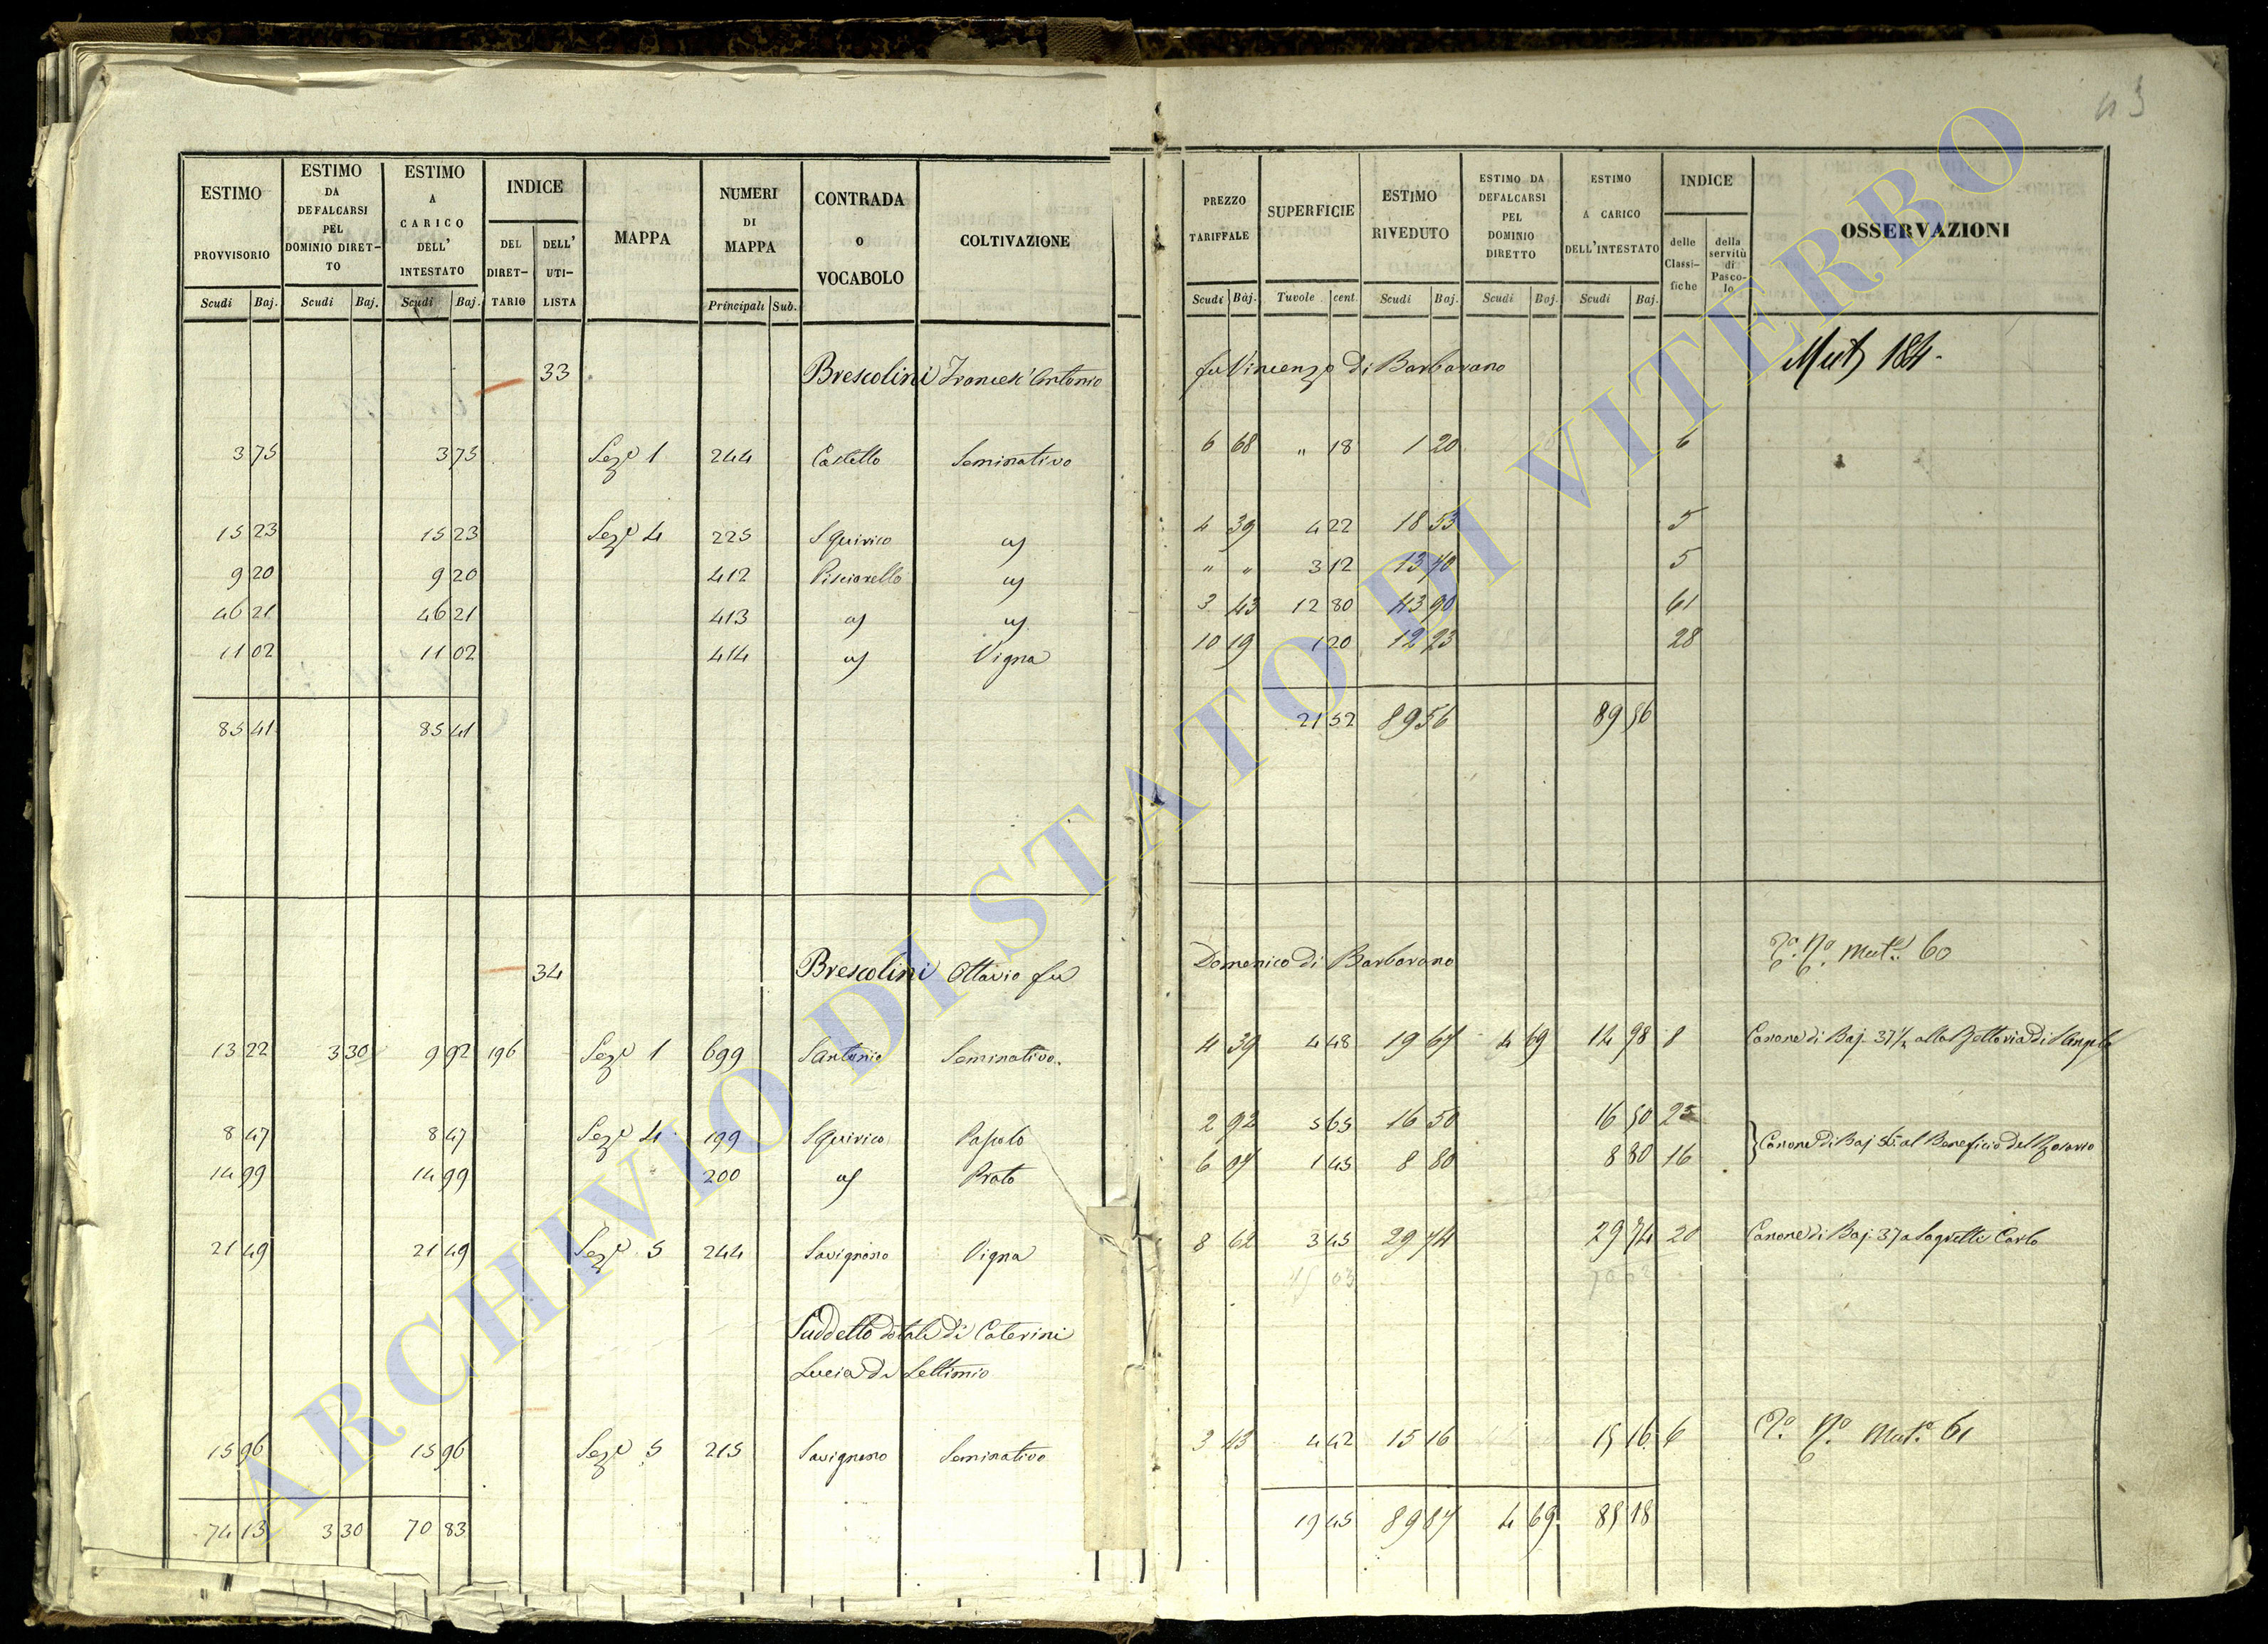 43
ESTIMO PROVVISORIO | ESTIMO DA DEFALCARSI PEL DOMINIO DIRETTO | ESTIMO A CARICO DELL' INTESTATO | INDICE | MAPPA | NUMERI DI MAPPA | CONTRADA o VOCABOLO | COLTIVAZIONE | PREZZO TARIFFALE | SUPERFICIE | ESTIMO RIVEDUTO | ESTIMO DA DEFALCARSI PEL DOMINIO DIRETTO | ESTIMO A CARICO DELL'INTESTATO | INDICE | OSSERVAZIONI
DEL DIRETTARIO | DELL' UTILISTA | delle Classifiche | della servitù di Pascolo
Scudi | Baj. | Scudi | Baj. | Scudi | Baj. | Principali | Sub. | Scudi | Baj. | Tavole | cent. | Scudi | Baj. | Scudi | Baj. | Scudi | Baj.
33 Brescolini Francesc'Antonio fu Vincenzo di Barbarano Mut 184.
3 75 3 75 Sez.e 1 244 Castello Seminativo 6 68 " 18 1 20 6
15 23 15 23 Sez.e 4 225 S Quirico 4 39 4 22 18 53 5
9 20 9 20 412 Pisciarello " " 3 12 13 70 5
46 21 46 21 413 3 43 12 80 43 90 61
11 02 11 02 414 Vigna 10 19 1 20 12 23 28
85 41 85 41 21 52 89 56 89 56
34 Brescolini Ottavio fu Domenico di Barbarano Mut.e 60
13 22 3 30 9 92 196 Sez.e 1 699 Santonio Seminativo. 4 39 4 48 19 67 4 69 14 98 8 Canone di Baj. 37½ alla Rettoria di S Angelo
8 47 8 47 Sez.e 4 199 S Quirico Pascolo 2 92 5 65 16 50 16 50 25
14 99 14 99 200 Prato 6 07 1 45 8 80 8 80 16 Canone di Baj 56 al Beneficio del Rosario
21 49 21 49 Sez.e 5 244 Savignano Vigna 8 62 3 45 29 74 29 74 20 Canone di Baj. 37 a Sagretti Carlo
15 03 70 02
Suddetto dotali di Caterini
Lucia di Settimio
15 96 15 96 Sez.e 5 215 Savignano Seminativo 3 43 4 42 15 16 15 16 6 Mut.e 61
74 13 3 30 70 83 19 45 89 87 4 69 85 18
ARCHIVIO DI STATO DI VITERBO